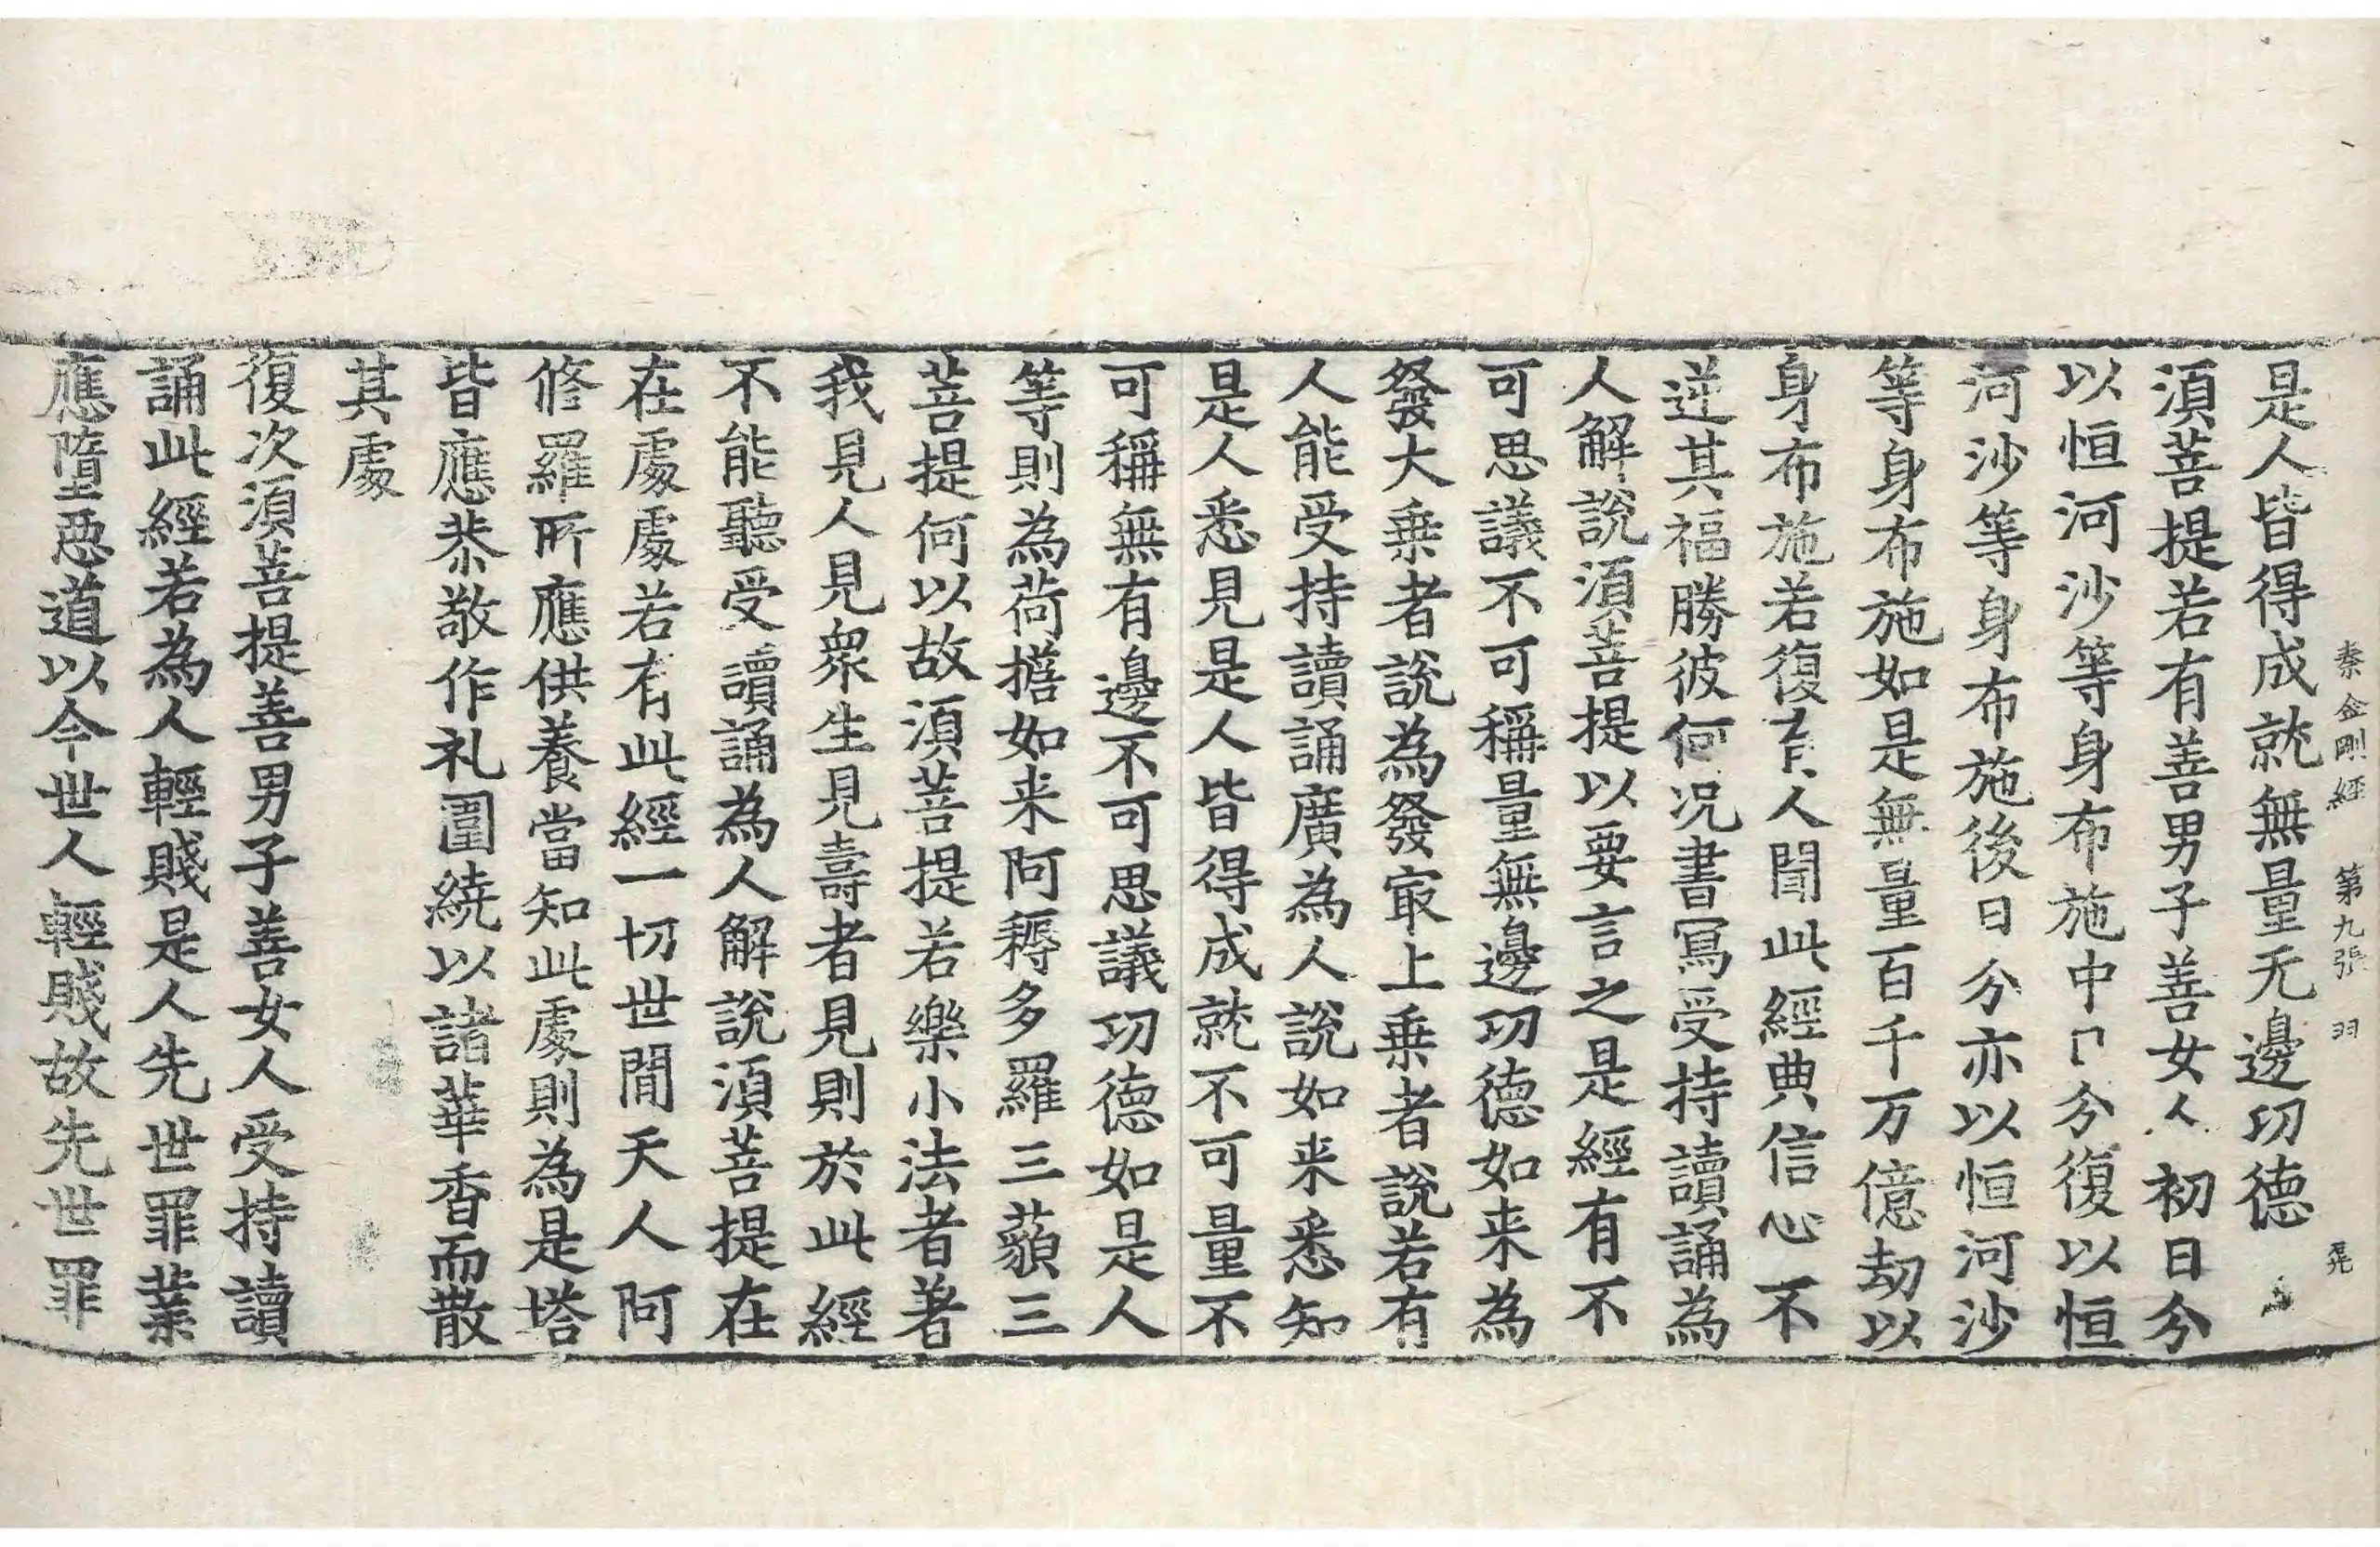 秦金剛經 第九張 羽 晃
是人皆得成就無量无邊功德
須菩提若有善男子善女人初日分
以恒河沙等身布施中日分復以恒
河沙等身布施後日分亦以恒河沙
等身布施如是無量百千万億劫以
身布施若復有人聞此經典信心不
逆其福勝彼何况書寫受持讀誦為
人解說須菩提以要言之是經有不
可思議不可稱量無邊功德如来為
發大乗者說為發㝡上乗者說若有
人能受持讀誦廣為人說如来悉知
是人悉見是人皆得成就不可量不
可稱無有邊不可思議功德如是人
等則為荷擔如来阿耨多羅三藐三
菩提何以故須菩提若樂小法者著
我見人見衆生見壽者見則於此經
不能聽受讀誦為人解說須菩提在
在處處若有此經一切世間天人阿
修羅所應供養當知此處則為是塔
皆應恭敬作礼圍繞以諸華香而散
其處
復次須菩提善男子善女人受持讀
誦此經若為人輕賤是人先世罪業
應墮惡道以今世人輕賤故先世罪